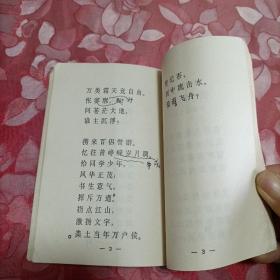 万类霜天竞自由。
怅寥廓，
问苍茫大地，
谁主沉浮？
携来百侣曾游。
忆往昔峥嵘岁月稠。
恰同学少年，
风华正茂；
书生意气，
挥斥方遒。
指点江山，
激扬文字，
粪土当年万户侯。
2
记否，
中流击水，
飞舟？
3